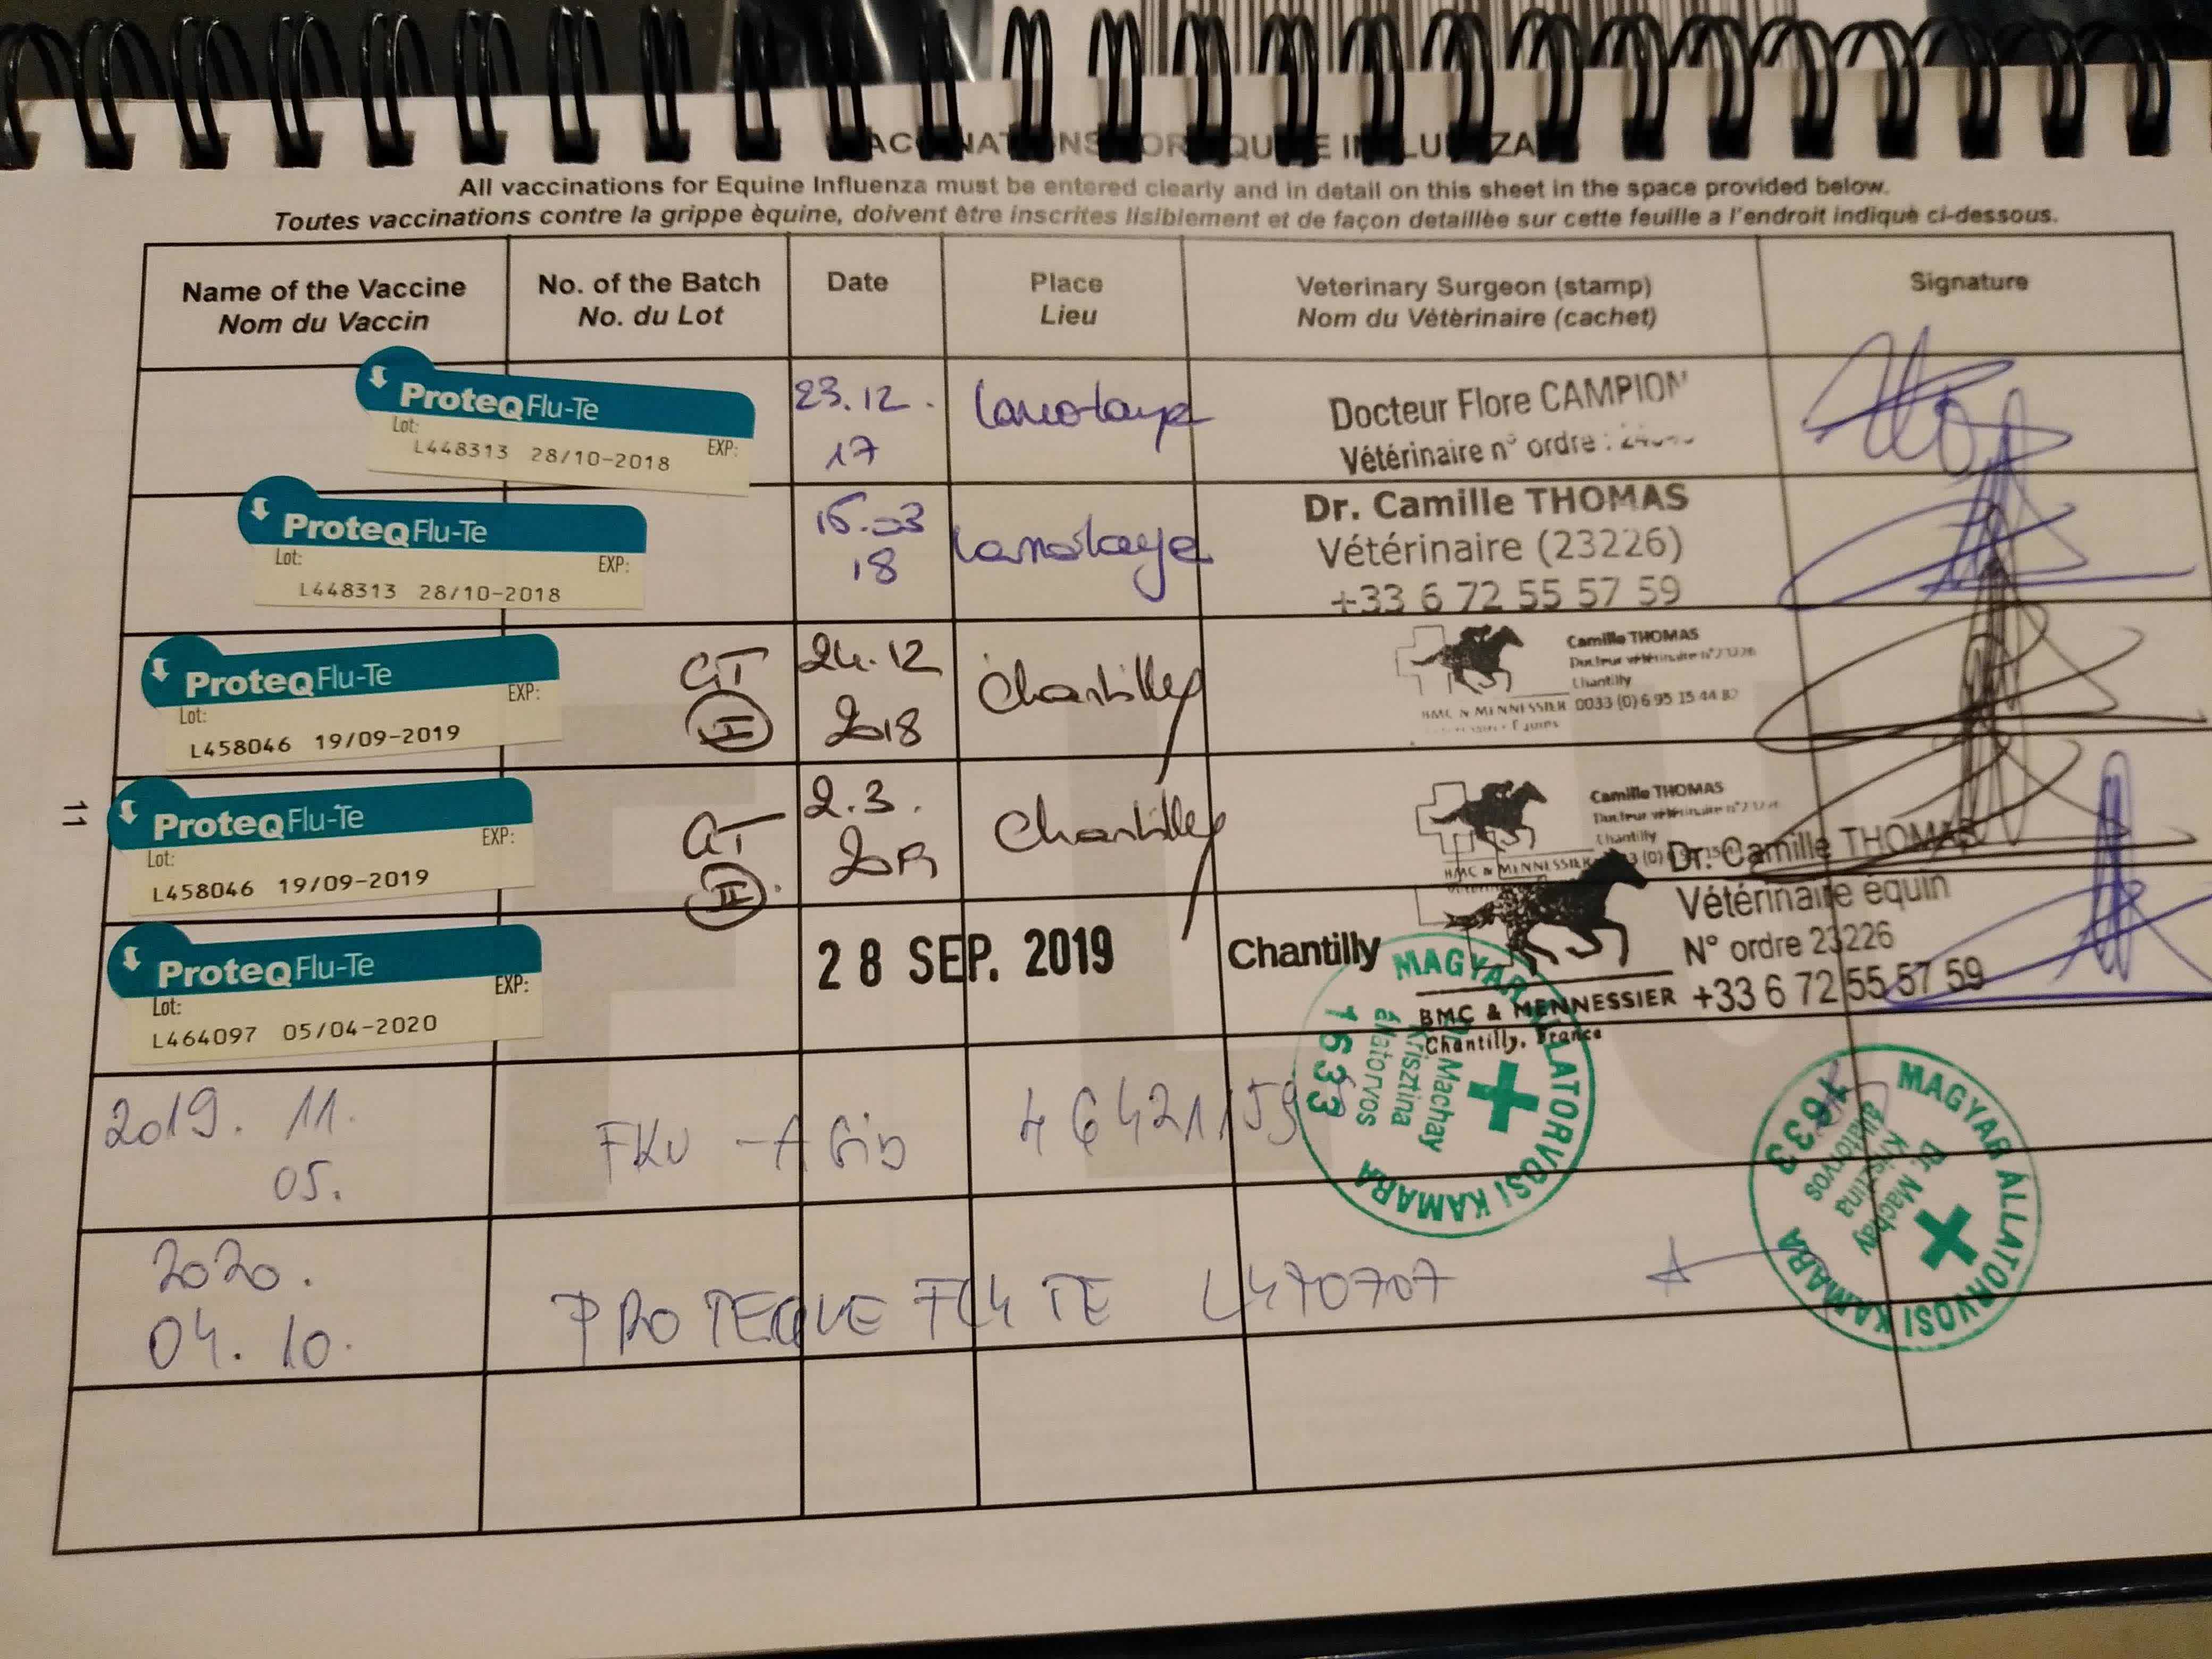 VACCINATIONS FOR EQUINE INFLUENZA
All vaccinations for Equine Influenza must be entered clearly and in detail on this sheet in the space provided below.
Toutes vaccinations contre la grippe èquine, doivent être inscrites lisiblement et de façon detaillèe sur cette feuille a l'endroit indiquè ci-dessous.
Name of the Vaccine
Nom du Vaccin
No. of the Batch
No. du Lot
Date
Place
Lieu
Veterinary Surgeon (stamp)
Nom du Vétèrinaire (cachet)
Signature
ProteqFlu-Te
Lot: EXP:
L448313 28/10-2018
23.12.
17
Lamorlaye
Docteur Flore CAMPION
Vétérinaire n° ordre :
ProteqFlu-Te
Lot: EXP:
L448313 28/10-2018
16.03
18
Lamorlaye
Dr. Camille THOMAS
Vétérinaire (23226)
+33 6 72 55 57 59
ProteqFlu-Te
Lot: EXP:
L458046 19/09-2019
CT
I
24.12
2018
Chantilly
Camille THOMAS
Docteur vétérinaire n°23226
Chantilly
0033 (0)6 95 15 44 82
BMC & MENNESSIER
ProteqFlu-Te
Lot: EXP:
L458046 19/09-2019
CT
II
2.3.
2019
Chantilly
Camille THOMAS
Docteur vétérinaire
Chantilly
BMC & MENNESSIER
11
ProteqFlu-Te
Lot: EXP:
L464097 05/04-2020
28 SEP. 2019
Chantilly
Dr. Camille THOMAS
Vétérinaire équin
N° ordre 23226
+33 6 72 55 57 59
BMC & MENNESSIER
Chantilly, France
2019. 11.
05.
FKU
MAGYAR ÁLLATORVOSI KAMARA
Dr. Machay
Krisztina
állatorvos
1633
2020.
04. 10.
PROTEQUE FLU TE L470707
MAGYAR ÁLLATORVOSI KAMARA
Dr. Machay
Krisztina
állatorvos
1633
FLU